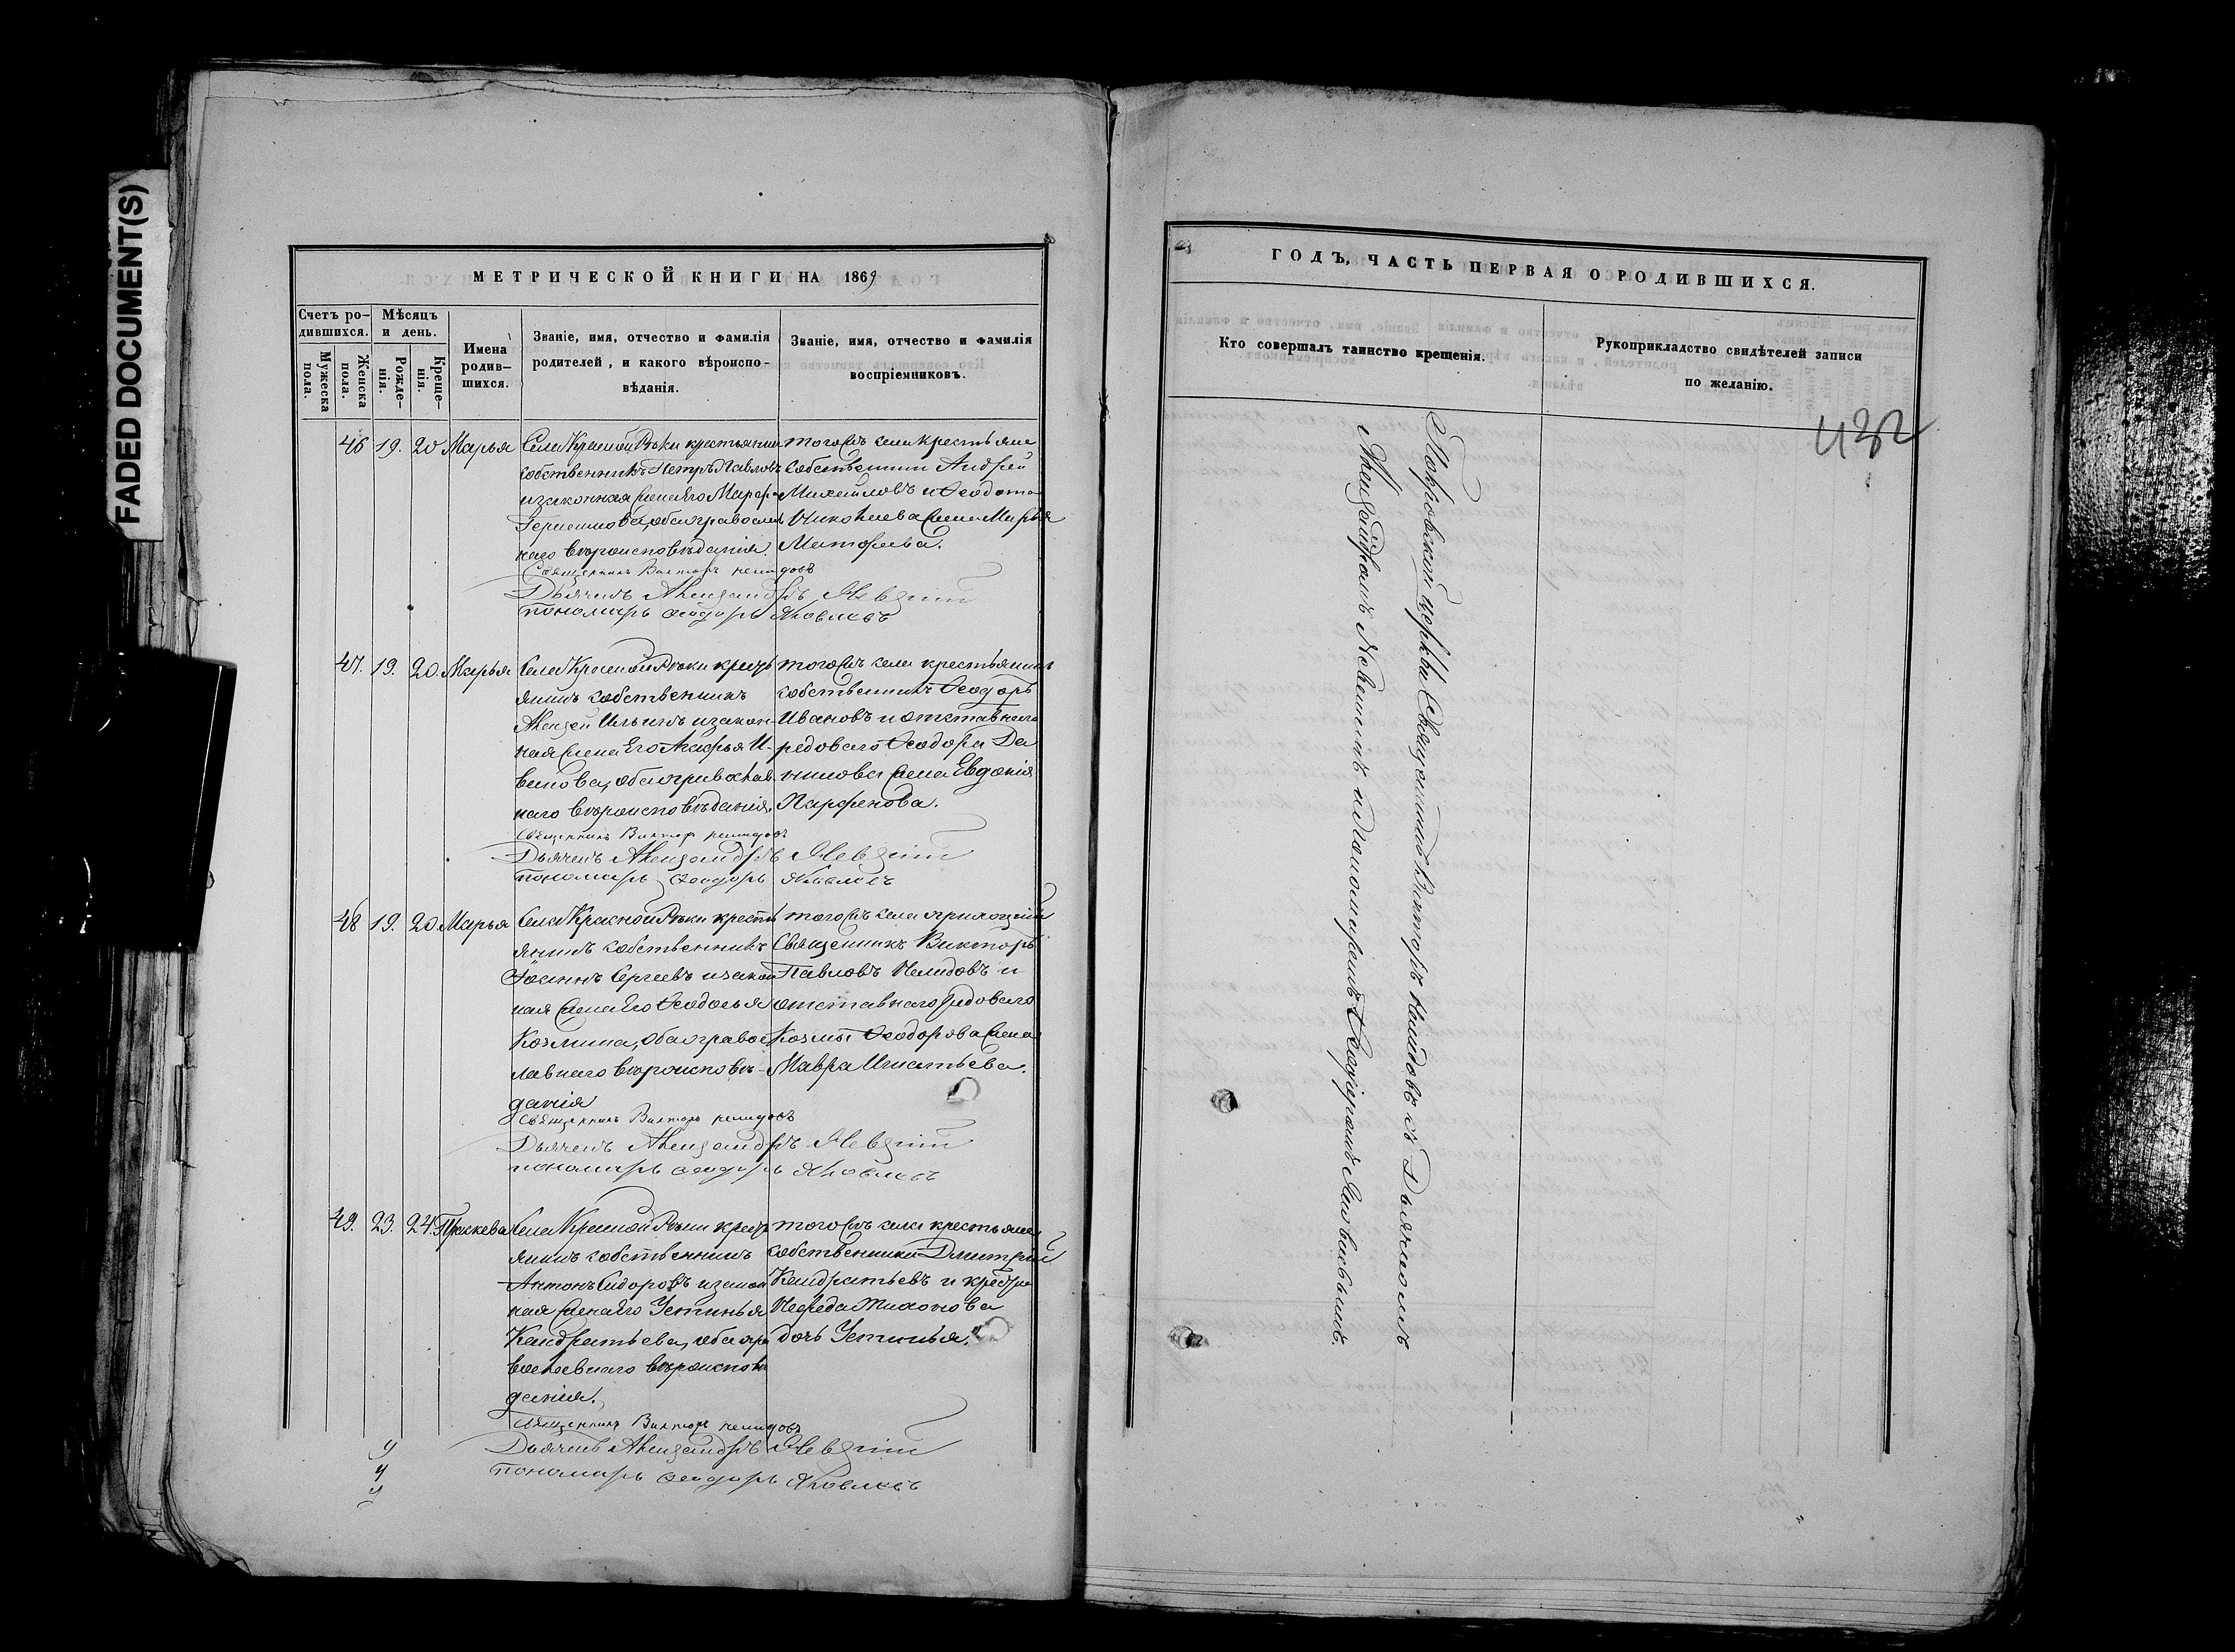 FADED DOCUMENT(S)
МЕТРИЧЕСКОЙ КНИГИ НА 1869
Счетъ ро-
дившихся.
Мужеска
пола.
Женска
пола.
Мѣсяцъ
и день.
Рожде-
нія.
Креще-
нія.
Имена
родив-
шихся.
Званіе, имя, отчество и фамилія
родителей, и какого вѣроиспо-
вѣданія.
Званіе, имя, отчество и фамилія
воспріемниковъ.
46 19. 20 Марья
Села Красной Рѣки крестьянин
собственникъ Петръ Павловъ
и законная жена Его Марфа
обаправослав
наго вѣроисповѣданія.
того жъ села крестьяне
собственники Андрей
Михайловъ и Ѳеодота
Николаева жена Марья
Матфеева.
Священникъ Викторъ Нелидовъ
Дьячекъ Александръ Невзгин
пономарь Ѳеодоръ Яковлевъ
47. 19. 20. Марья
Села Красной Рѣки крест
янинъ собственникъ
Алексей Ильинъ и закон-
ная жена Его Агафья И-
ванова, оба православ
наго вѣроисповѣданія,
того жъ села крестьянинъ
собственникъ Ѳеодоръ
Ивановъ и отставнаго
редоваго Ѳеодора Да
нилова жена Евдокія
Парфенова.
Священникъ Викторъ Нелидовъ
Дьячекъ Александръ
пономарь Ѳеодоръ Яковлевъ
48 19. 20. Марья
Села Красной Рѣки кресть
янинъ собственникъ
Іоаннъ Сергеевъ и закон
ная жена Его Ѳеодосья
Козмина, оба правос
лавнаго вѣроисповѣ-
данія
того жъ села приходскій
Священникъ Викторъ
Павловъ Нелидовъ и
отставнаго рядоваго
Козмы Ѳеодорова жена
Мавра Игнатьева.
Священникъ Викторъ Нелидовъ
Дьячекъ Александръ
пономарь Ѳеодоръ Яковлевъ
49. 23. 24. Праскева
Села Красной Рѣки крест
янинъ собственникъ
Антонъ Сидоровъ и закон
ная жена Его Устинья
Кандратьева, оба пра
вославнаго вѣроисповѣ
данія.
того жъ села крестьяне
собственники Дмитрій
Кандратьевъ и
Нефеда Тихонова
дочь Устинья.
Священникъ Викторъ Нелидовъ
Дьячекъ Александръ
пономарь Ѳеодоръ Яковлевъ
ГОДЪ, ЧАСТЬ ПЕРВАЯ О РОДИВШИХСЯ.
Кто совершалъ таинство крещенія.
Рукоприкладство свидѣтелей записи
по желанію.
432
Покровской церкви Священникъ Викторъ Нелидовъ съ Дьячкомъ
Александромъ и Пономаремъ Ѳеодоромъ Яковлевымъ.